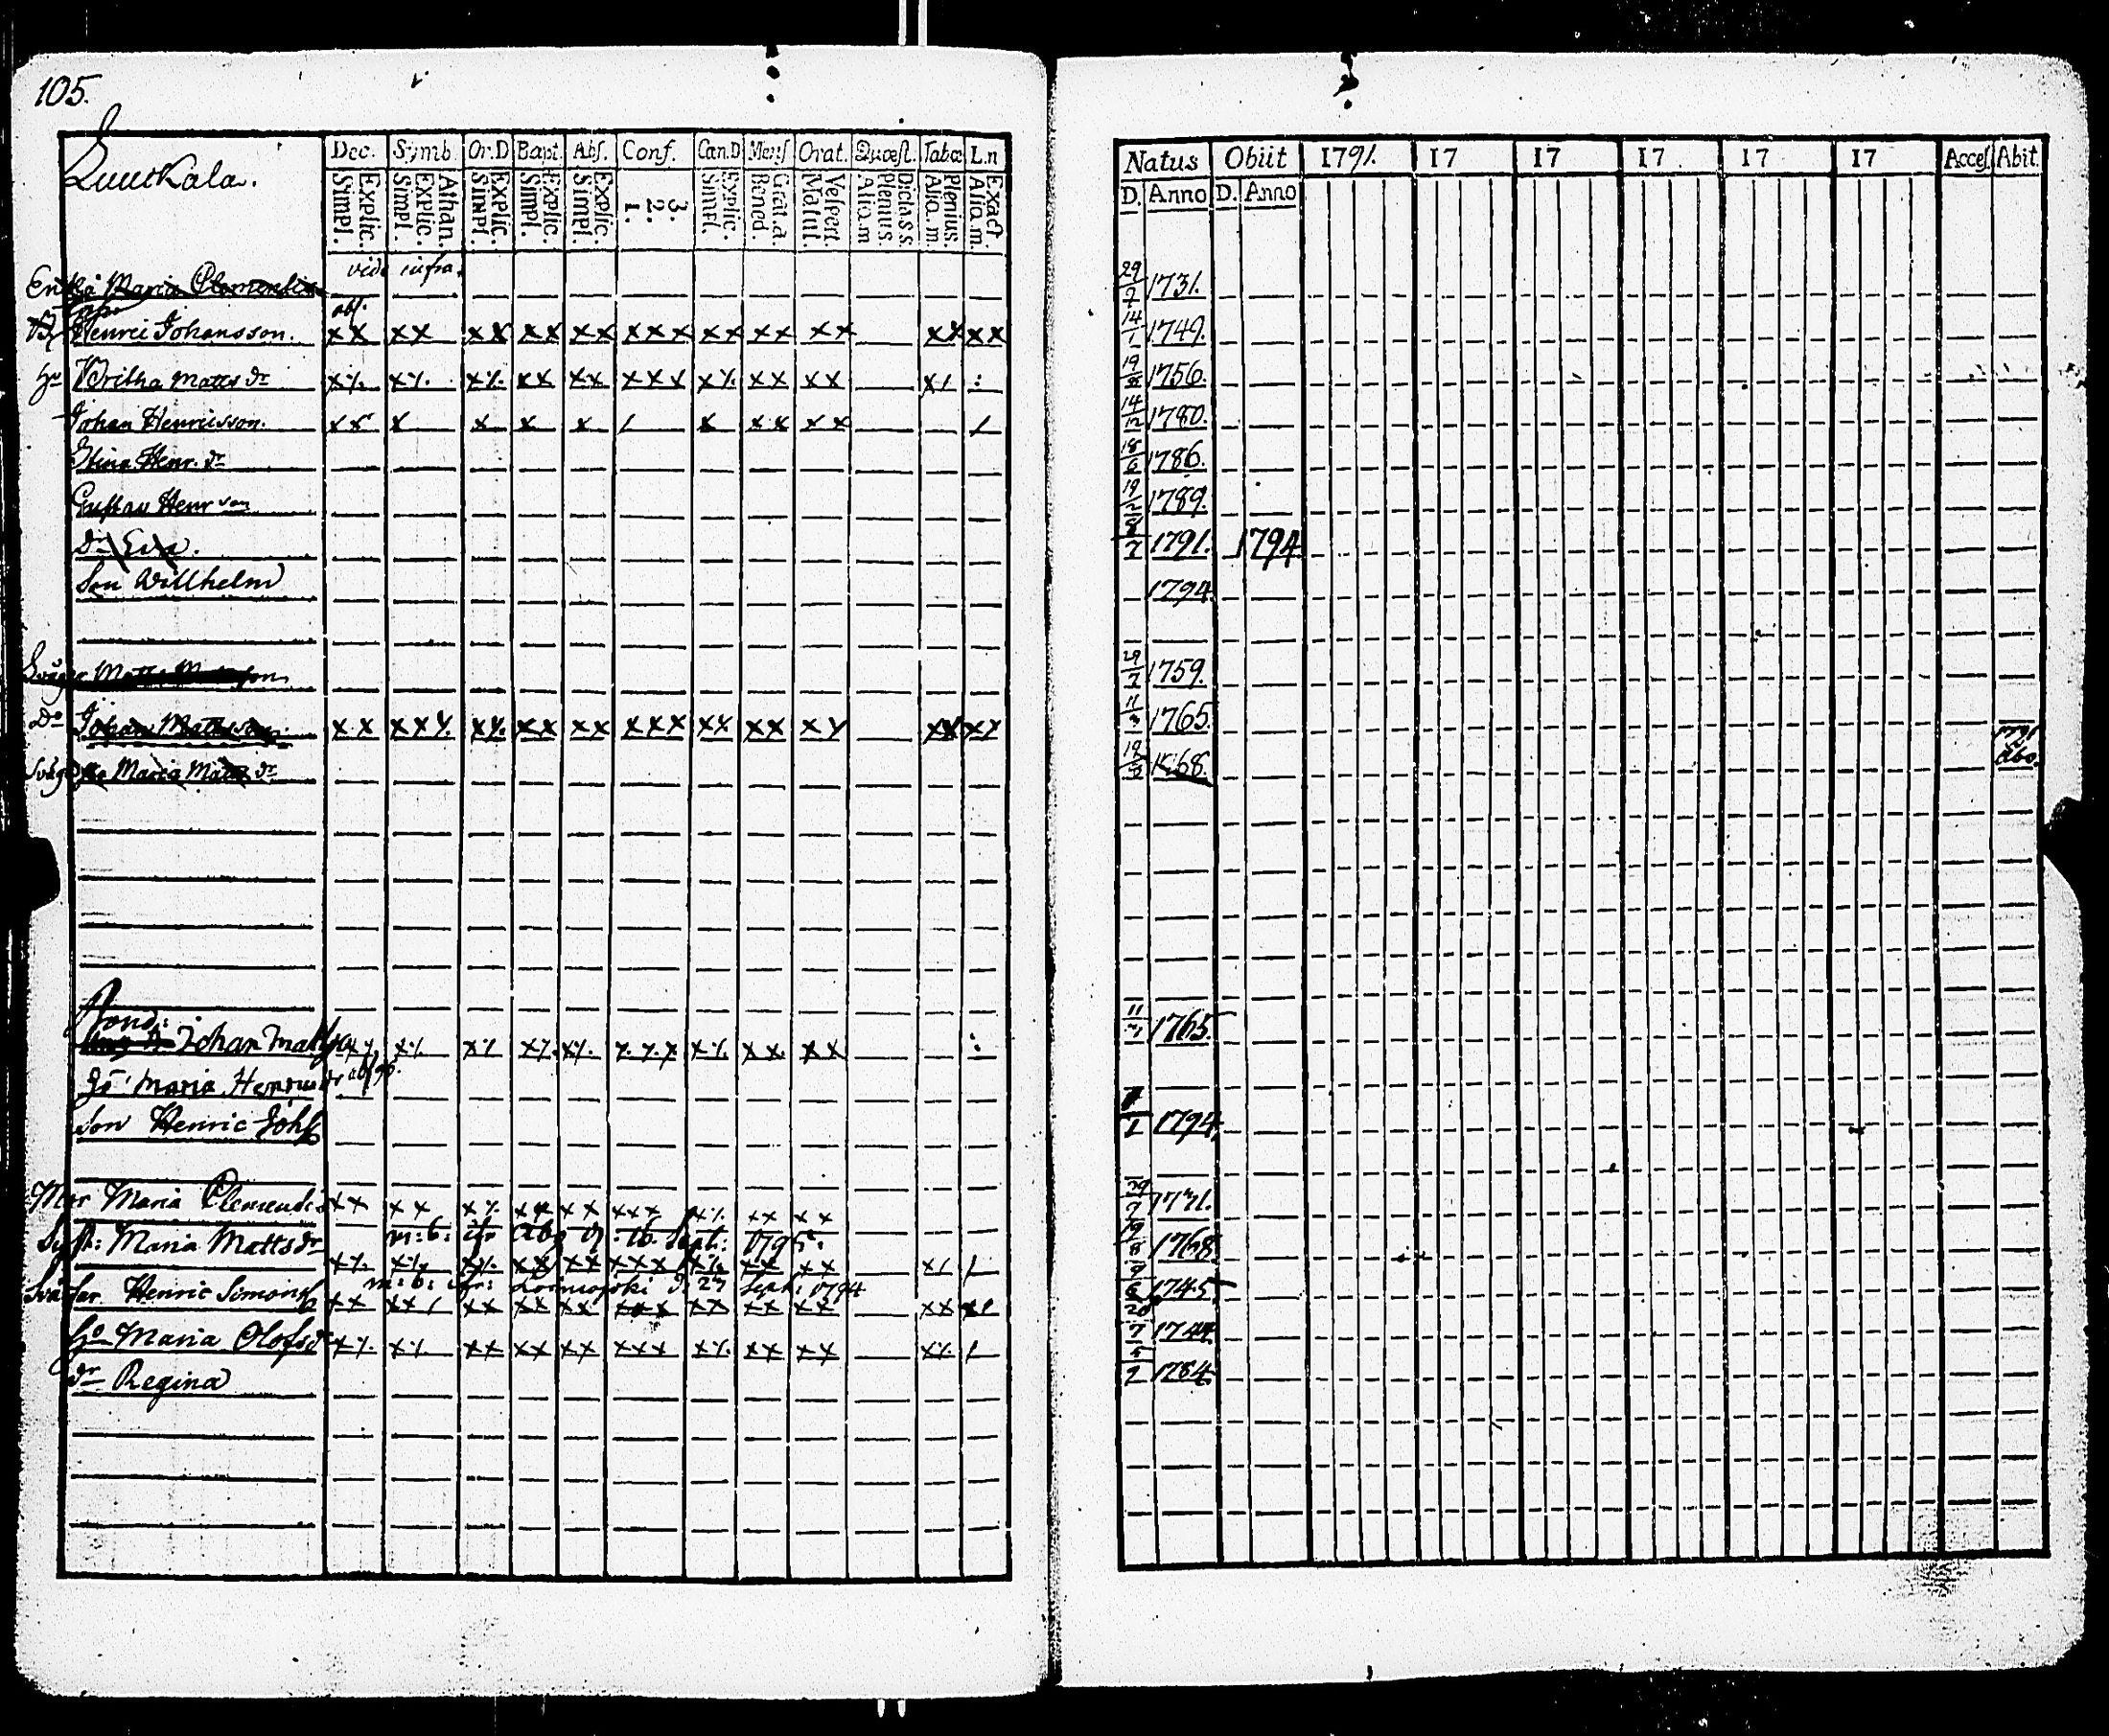 105.
Dec. Symb. Or.D Bapt. Abs. Conf. Can.D Mens Orat. Quæst. Tabæ L.n
Explic. Simpl. Athan. Explic. Simpl. Explic. Simpl. Explic. Simpl. Explic. Simpl. 3. 2. 1. Explic. Simpl. Grat.a. Bened Vespert. Matut. Dicta s.s. Plenius. Aliq.m Plenius. Aliq.m. Exact. Aliq.m.
Natus Obiit 1791. 17 17 17 17 17 Acces. Abit.
D. Anno D. Anno
vide infra.
Enkia Maria Clementis 29/7 1731.
abs.
Henric Johansson. xx xx xx xx xx xxx xx xx xx xx xx 14/1 1749.
Hu Britha Matts dr x٪ x٪ x٪ xx xx xxx x٪ xx xx x/ : 19/8 1756.
Johan Henricsson. xx x x x x / x xx xx / 14/12 1780.
Stina Henr. dr 18/6 1786.
Gustav Henr son 19/2 1789.
Dr Eva. 8/7 1791. 1794
Son Willhelm 1794.
Svåger Matts Matsson 29/7 1759.
Do Johan Mattsson xx xxy xy. xx xx xxx xx xx xy xx xy 11/3 1765.
Maria Matts dr 19/8 1768. 1791 Åbo.
Bond:
Johan Matts 11/3 1765.
Maria Henricsdr
Son Henric Johs 1794.
Mor Maria Clemends xx xx x٪ xx xx xxx x٪ xx xx 29/7 1731.
m: b: fr Åbo d. 16. Sept: 1795:
Syst: Maria Matts dr x٪ x٪ x٪ xx xx xxx x٪ xx xx x/ / 19/8 1768
m: b: fr: d. 23 Sept: 1794
Svärfar Henric Simons xx xx/ xx xx xx xxx xx xx xx xx x/ 9/6 1745
Hu Maria Olofsd x٪ x٪ xx xx xx xxx x٪ xx xx x٪ / 20/7 1744.
dr Regina 5/2 1784.